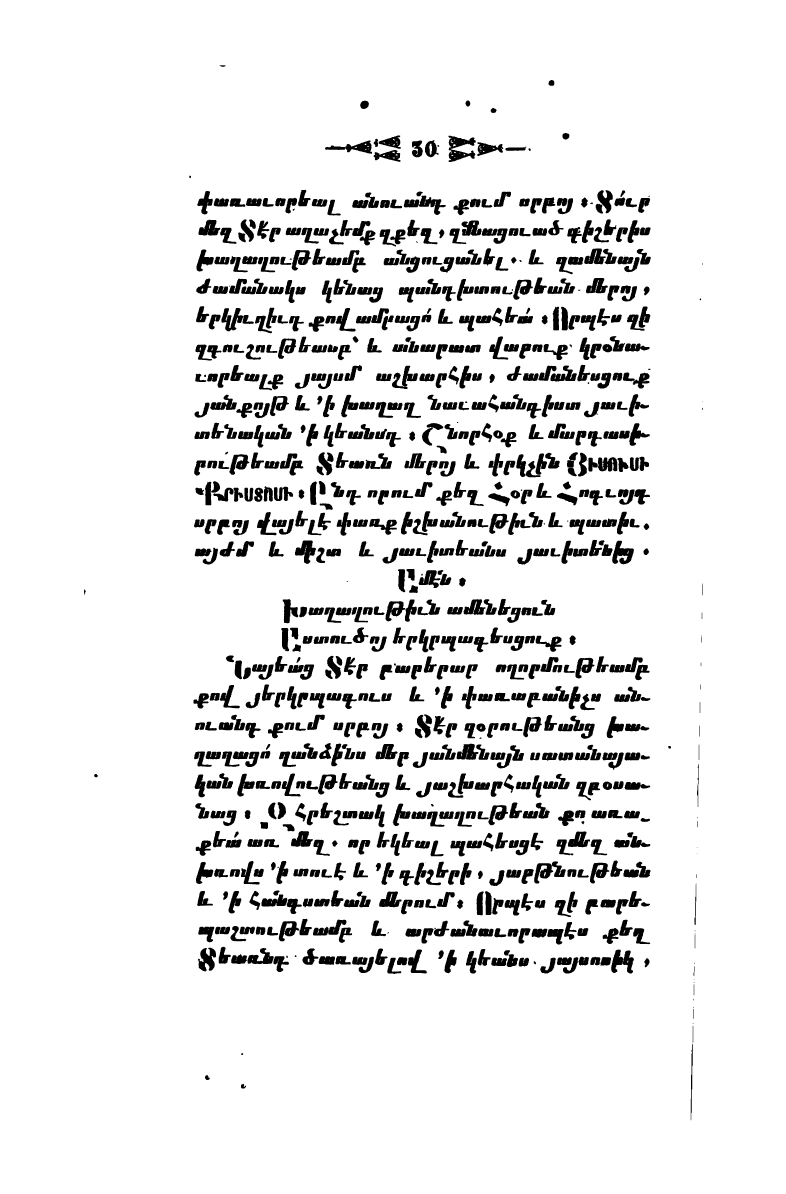 30
փառաւորեալ անուանդ քում սրբոյ։ Տո՛ւր
մեզ Տէր աղաչեմք զքեզ, զմնացուած գիշերիս
խաղաղութեամբ անցուցանել. և զամենայն
ժամանակս կենաց պանդխտութեան մերոյ,
երկիւղիւդ քով ամրացո՛ և պահեա՛։ Որպէս զի
զգուշութեամբ՝ և անարատ վարուք կրօնա-
ւորեալք յայսմ աշխարհիս, ժամանեսցուք
յանքոյթ և ՚ի խաղաղ նաւահանգիստ յաւի-
տենական ՚ի կեանսդ։ Շնորհօք և մարդասի-
րութեամբ Տեառն մերոյ և փրկչին ՅԻՍՈՒՍԻ
ՔՐԻՍՏՈՍԻ։ Ընդ որում քեզ Հօր և Հոգւոյդ
սրբոյ վայելէ փառք իշխանութիւն և պատիւ.
այժմ և միշտ և յաւիտեանս յաւիտենից.
Ամէն։
Խաղաղութիւն ամենեցուն
Աստուծոյ երկրպագեսցուք։
Նայեա՛ց Տէր բարերար ողորմութեամբ
քով յերկրպագուս և ՚ի փառաբանիչս ան-
ուանդ քում սրբոյ։ Տէր զօրութեանց խա-
ղաղացո՛ զանձինս մեր յամենայն սատանայա-
կան խռովութեանց և յաշխարհական զբօսա-
նաց։ Օհրեշտակ խաղաղութեան քո առա-
քեա՛ առ մեզ. որ եկեալ պահեսցէ զմեզ ան-
խռովս ՚ի տուէ և ՚ի գիշերի, յարթնութեան
և ՚ի հանգստեան մերում։ Որպէս զի բարե-
պաշտութեամբ և արժանաւորապէս քեզ
Տեառնդ ծառայելով ՚ի կեանս յայսոսիկ,